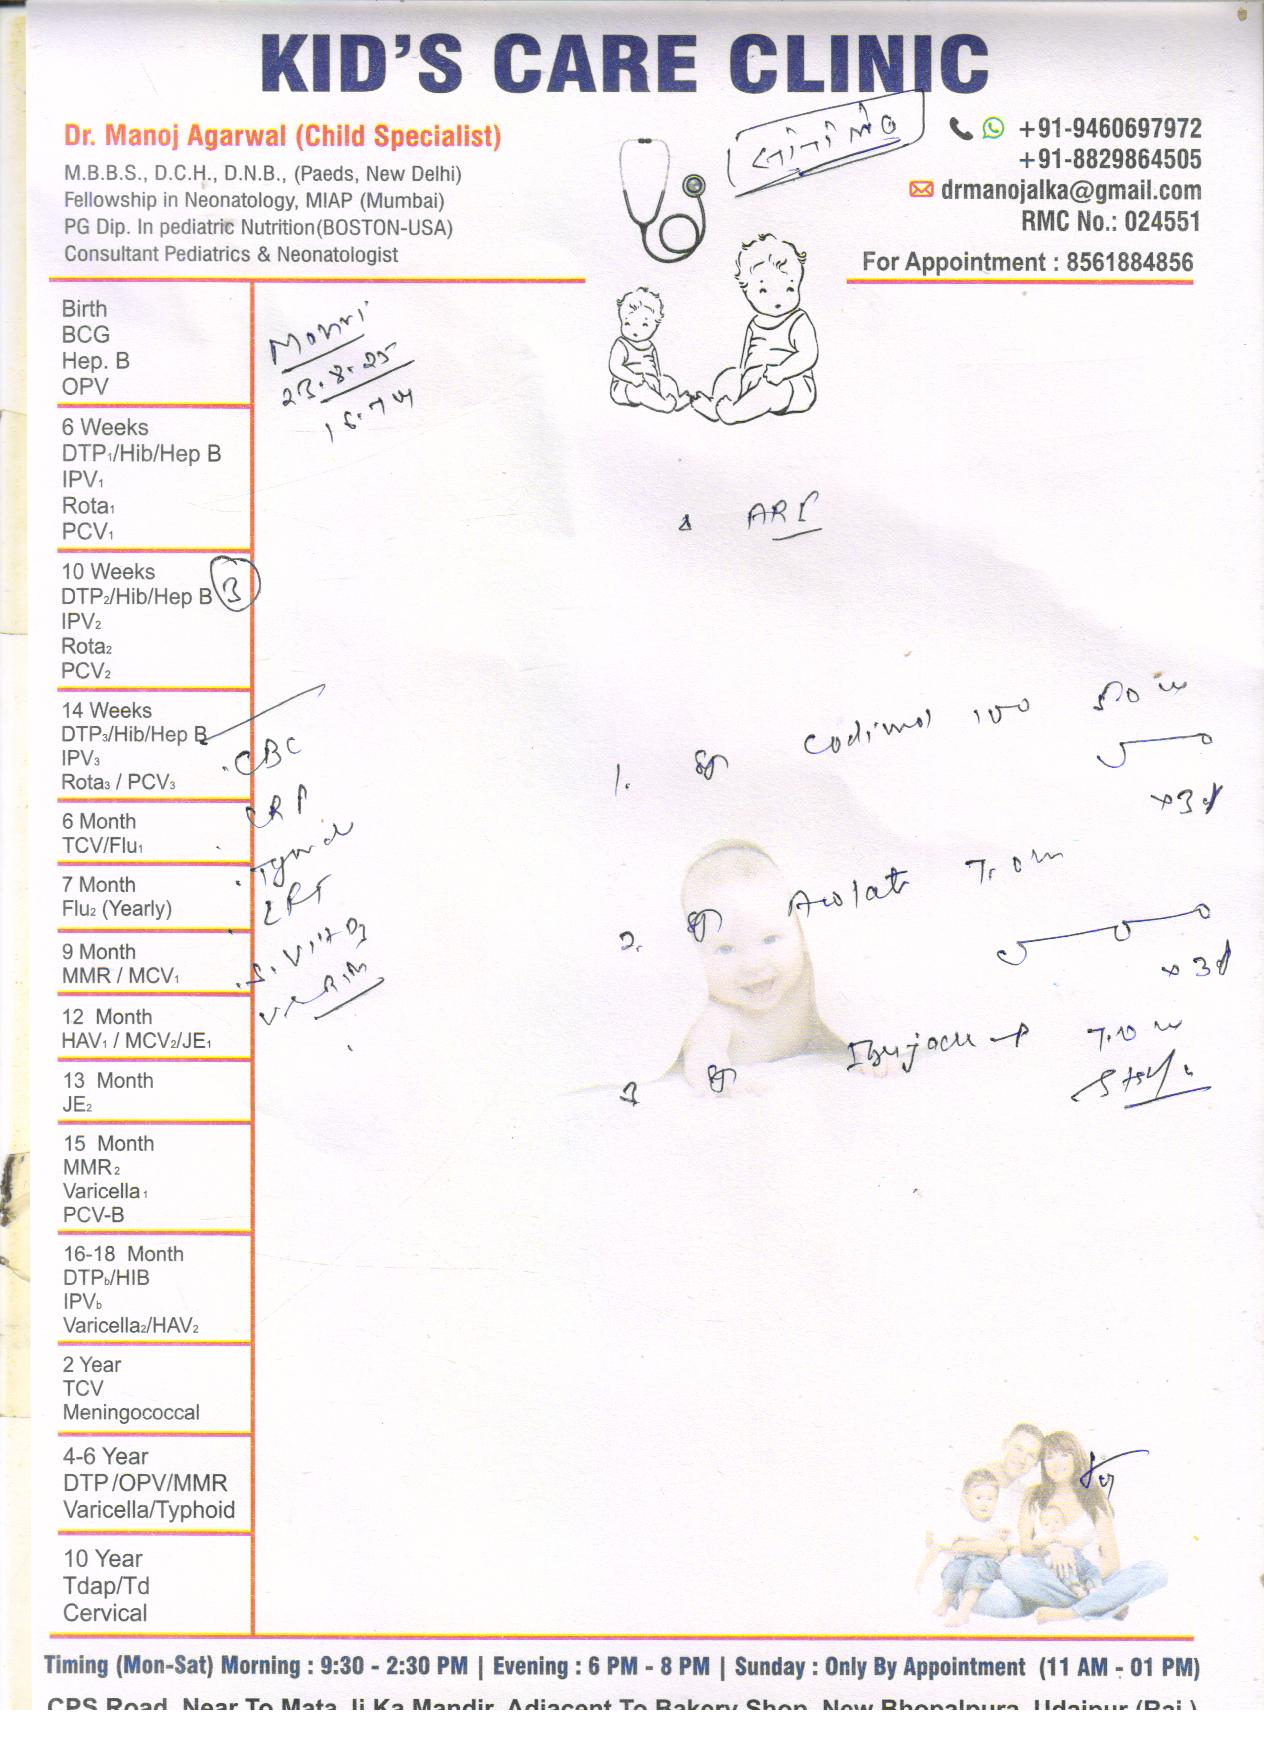 KID'S CARE CLINIC
Dr. Manoj Agarwal (Child Specialist)
M.B.B.S., D.C.H., D.N.B., (Paeds, New Delhi)
Fellowship in Neonatology, MIAP (Mumbai)
PG Dip. In pediatric Nutrition(BOSTON-USA)
Consultant Pediatrics & Neonatologist
+91-9460697972
+91-8829864505
drmanojalka@gmail.com
RMC No.: 024551
For Appointment : 8561884856
Birth
BCG
Hep. B
OPV
23.8.25
6 Weeks
DTP₁/Hib/Hep B
IPV₁
Rota₁
PCV₁
ARI
10 Weeks
DTP₂/Hib/Hep B
IPV₂
Rota₂
PCV₂
14 Weeks
DTP₃/Hib/Hep B
IPV₃
Rota₃ / PCV₃
CBC
CRP
6 Month
TCV/Flu₁
7 Month
Flu₂ (Yearly)
9 Month
MMR / MCV₁
S. Vit D3
12 Month
HAV₁ / MCV₂/JE₁
13 Month
JE₂
15 Month
MMR₂
Varicella₁
PCV-B
16-18 Month
DTPb/HIB
IPVb
Varicella₂/HAV₂
2 Year
TCV
Meningococcal
4-6 Year
DTP/OPV/MMR
Varicella/Typhoid
10 Year
Tdap/Td
Cervical
1. 100
x3d
2. 7.0
x3d
3
Timing (Mon-Sat) Morning : 9:30 - 2:30 PM | Evening : 6 PM - 8 PM | Sunday : Only By Appointment (11 AM - 01 PM)
CPS Road, Near To Mata Ji Ka Mandir, Adjacent To Bakery Shop, New Bhopalpura, Udaipur (Raj.)